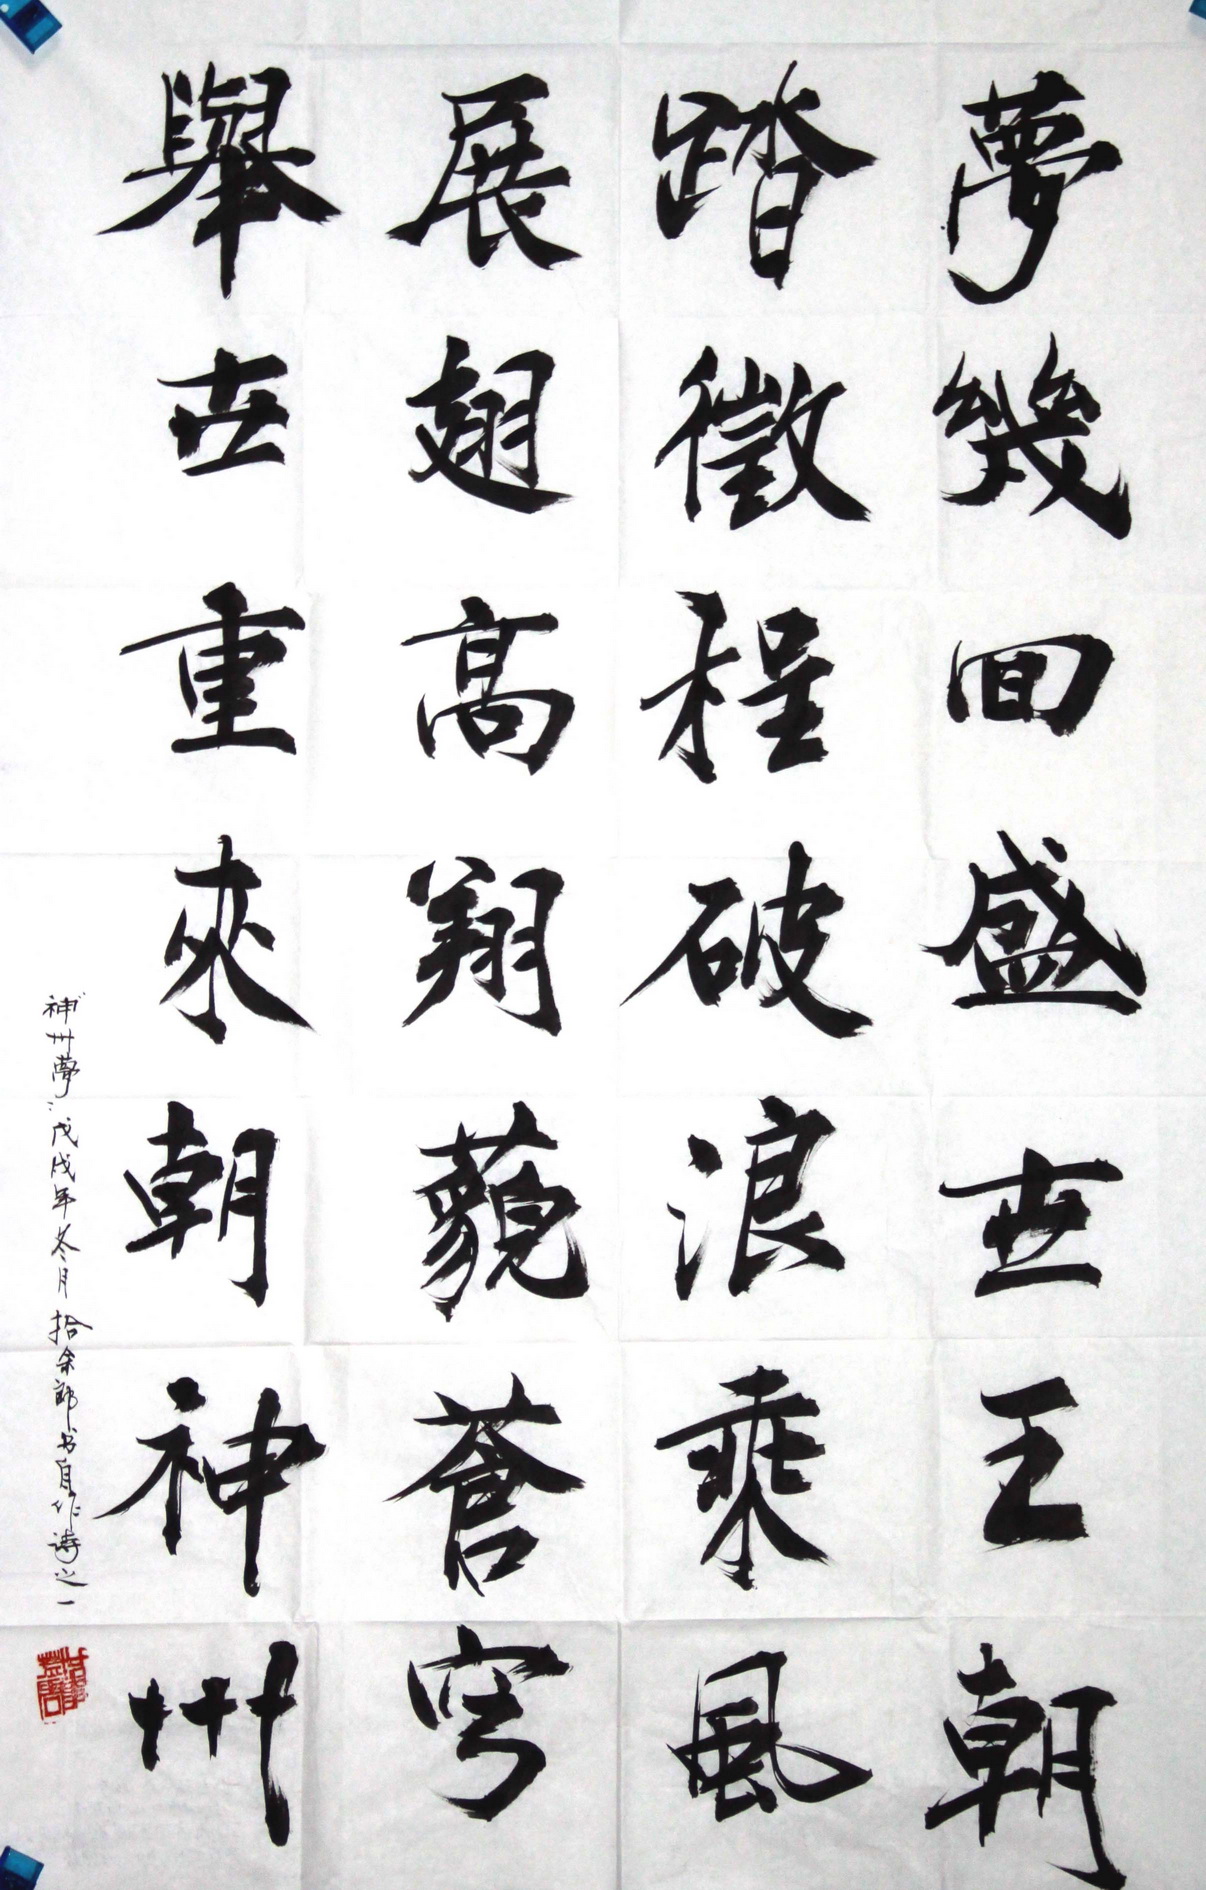 夢幾回盛世王朝
踏徵程破浪乘風
展翅高翔藐蒼穹
舉世重來朝神州
神州夢：戊戌年冬月拾余郎书自作诗之一